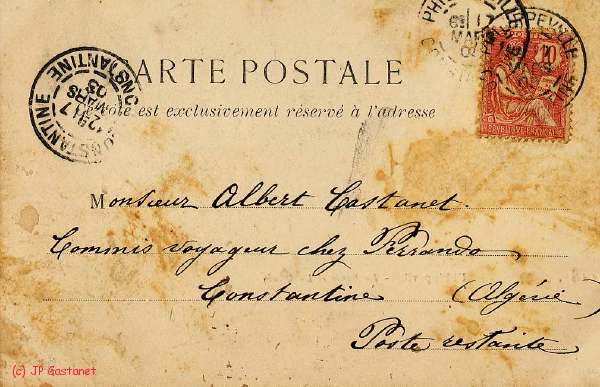 CARTE POSTALE
Ce côté est exclusivement réservé à l'adresse
CONSTANTINE
CONSTANTINE
17
MARS
03
10
Monsieur Albert Castanet.
Commis voyageur chez Ferrando
Constantine (Algérie)
Poste restante
(c) JP Castanet